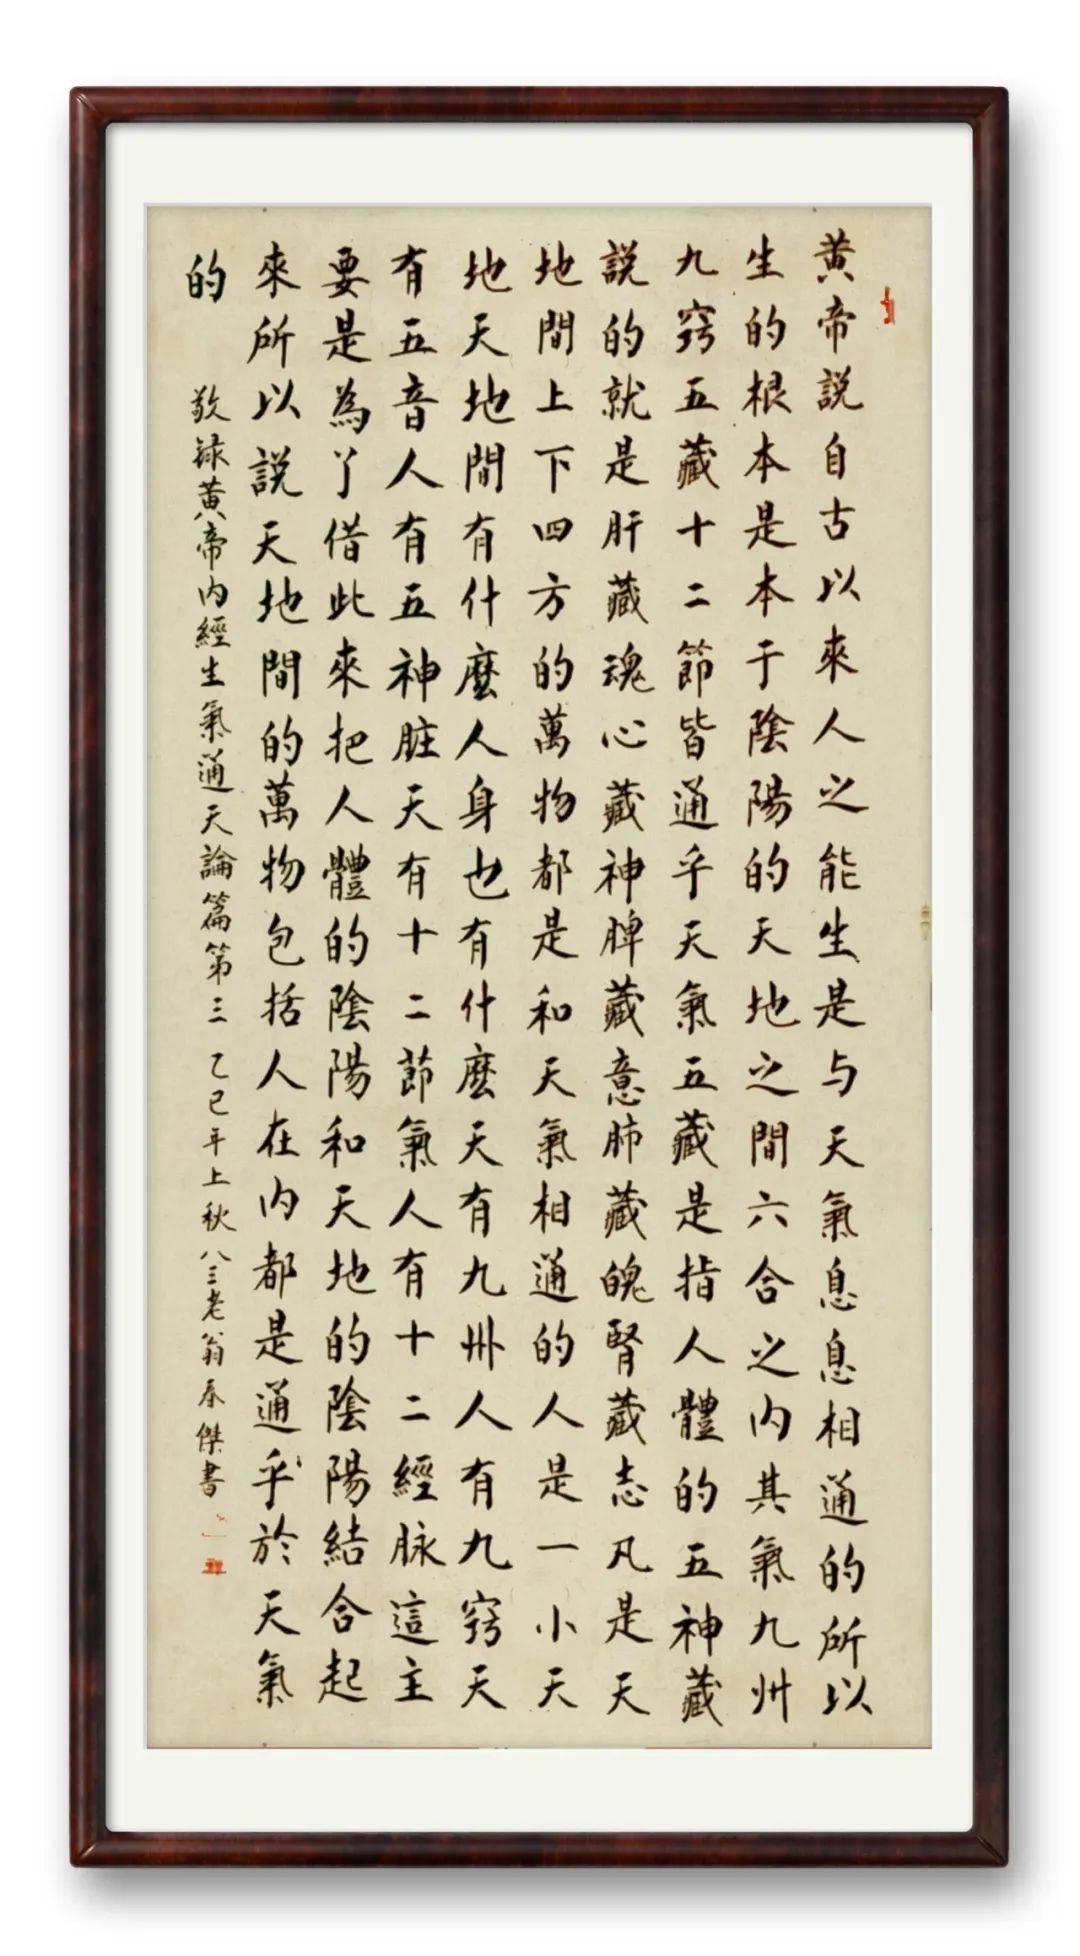 黄帝説自古以來人之能生是与天氣息息相通的所以
生的根本是本于陰陽的天地之間六合之内其氣九州
九窍五藏十二節皆通乎天氣五藏是指人體的五神藏
説的就是肝藏魂心藏神脾藏意肺藏魄腎藏志凡是天
地間上下四方的萬物都是和天氣相通的人是一小天
地天地間有什麽人身也有什麽天有九州人有九窍天
有五音人有五神脏天有十二節氣人有十二經脉這主
要是為了借此來把人體的陰陽和天地的陰陽結合起
來所以説天地間的萬物包括人在内都是通乎於天氣
的
敬録黄帝内經生氣通天論篇第三 乙巳年上秋八三老翁春傑書